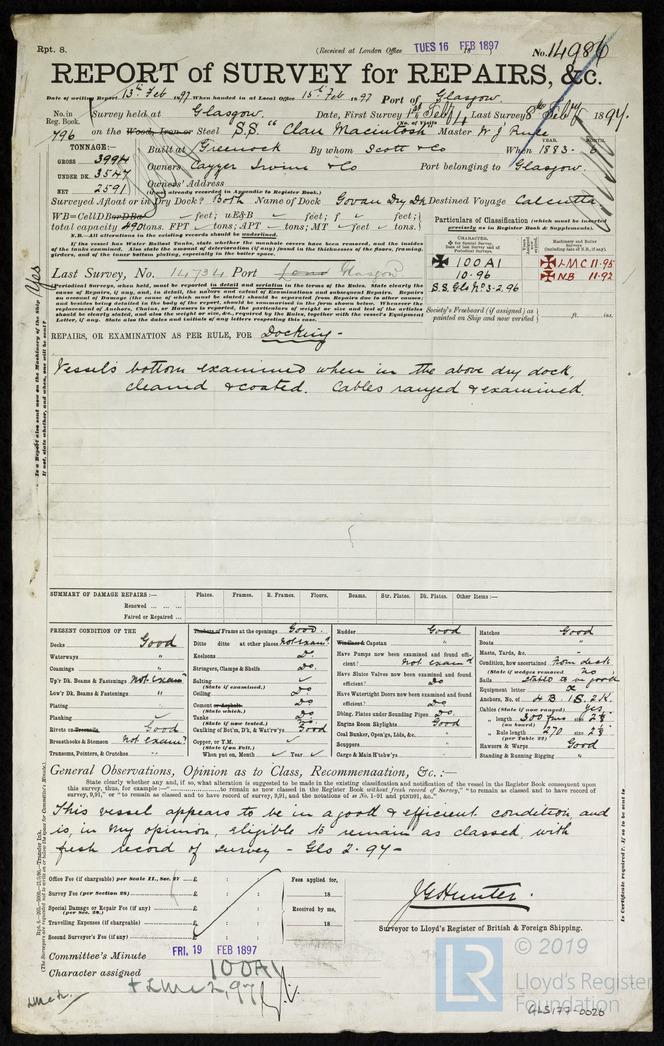 Rpt. 8.
(Received at London Office TUES 16 FEB 1897
No. 14986
REPORT of SURVEY for REPAIRS, &c.
Date of writing Report 13th Feb 1897 When handed in at Local Office 15th Feb 1897 Port of Glasgow.
No. in Reg. Book. Survey held at Glasgow. Date, First Survey 1st Feby Last Survey 8th Feby 1897.
(No. of Visits 4)
796 on the Wood, Iron or Steel S.S. "Clan Macintosh Master W J
TONNAGE:—
GROSS 3994
UNDER DK. 3547
NET 2591
Built at Greenock By whom Scott & Co When 1883 - 6
YEAR. MONTH.
Owners Cayzer Irvine & Co Port belonging to Glasgow.
Owners' Address
(if not already recorded in Appendix to Register Book.)
Surveyed Afloat or in Dry Dock? Both Name of Dock Govan Dry Dk Destined Voyage Calcutta
WB=CellDBorDBa feet; uE&B feet; f feet;
total capacity 490 tons. FPT tons; APT tons; MT feet tons.
N.B.—All alterations in the existing records should be underlined.
If the vessel has Water Ballast Tanks, state whether the manhole covers have been removed, and the insides of the tanks examined. Also state the amount of deterioration (if any) found in the thicknesses of the floors, framing, girders, and of the inner bottom plating, especially in the boiler space.
Particulars of Classification (which must be inserted precisely as in Register Book & Supplements).
CHARACTER.
Machinery and Boiler Surveys (including date of N.B., if any).
✠ 100A1
10.96
S.S. Gls No 3-2.96
✠ LMC 11.95
✠ NB 11.92
Last Survey, No. 14734 Port Glasgow
Periodical Surveys, when held, must be reported in detail and seriatim in the terms of the Rules. State clearly the cause of Repairs, if any, and, in detail, the nature and extent of Examinations and subsequent Repairs. Repairs on account of Damage (the cause of which must be stated) should be separated from Repairs due to other causes; and besides being detailed in the body of the report, should be summarised in the form shown below. Whenever the replacement of Anchors, Chains, or Hawsers is reported, the particulars of weight or size and test of the articles should be clearly stated, and also the weight or size, &c., required by the Rules, together with the vessel's Equipment Letter, if any. State also the dates and initials of any letters respecting this case.
Society's Freeboard (if assigned) as painted on Ship and now verified ft. ins.
Is a Report also sent now on the Machinery of the Ship Yes
If not, state whether, and when, one will be sent?
REPAIRS, OR EXAMINATION AS PER RULE, FOR Docking -
Vessels bottom examined when in the above dry dock,
cleaned & coated. Cables ranged & examined.
SUMMARY OF DAMAGE REPAIRS :— Plates. Frames. R. Frames. Floors. Beams. Str. Plates. Dk. Plates. Other Items :—
Renewed ... ... ...
Faired or Repaired ...
PRESENT CONDITION OF THE
Decks Good
Waterways "
Coamings "
Up'r Dk. Beams & Fastenings Not examd
Low'r Dk. Beams & Fastenings "
Plating
Planking
Rivets or Treenails Good
Breasthooks & Stemson Not examd
Transoms, Pointers, & Crutches "
Timbers or Frame at the openings Good.
Ditto ditto at other places Not examd
Keelsons Do.
Stringers, Clamps & Shelfs Do.
Salting
(State if examined.)
Ceiling Do
Cement or Asphalt Do
(State which.)
Tanks Do
(State if now tested.)
Caulking of Bot'm, D'k, & Wat'rw'ys Good
Copper, or Y.M.
(State if on Felt.)
When put on, Month Year
Rudder Good
Windlass & Capstan "
Have Pumps now been examined and found efficient? Not examd
Have Sluice Valves now been examined and found efficient? Do
Have Watertight Doors now been examined and found efficient? Do.
Dblng. Plates under Sounding Pipes Do
Engine Room Skylights Good
Coal Bunker, Open'gs, Lids, &c. "
Scuppers "
Cargo & Main H'tchw'ys "
Hatches Good
Boats "
Masts, Yards, &c. "
Condition, how ascertained from deck
(State if wedges removed. No)
Sails stated to be good
Equipment letter
Anchors, No. of 4 B 1 S. 2 K.
Cables (State if now ranged) Yes
" length 300 fms size 2 1/8
(on board)
" Rule length 270 size 2 1/8
(per Table 22)
Hawsers & Warps Good
Standing & Running Rigging "
General Observations, Opinion as to Class, Recommendation, &c. :—
State clearly whether any and, if so, what alteration is suggested to be made in the existing classification and notification of the vessel in the Register Book consequent upon this survey, thus, for example :—"to remain as now classed in the Register Book without fresh record of Survey," "to remain as classed and to have record of survey, 9,91," or "to remain as classed and to have record of survey, 9,91, and the notations of ss No. 1-91 and ptND91, &c."
This vessel appears to be in a good & efficient condition, and
is, in my opinion, eligible to remain as classed, with
fresh record of survey - Gls 2.97-
Office Fee (if chargeable) per Scale II., Sec. 27 £ : :
Survey Fee (per Section 28) £ : :
Special Damage or Repair Fee (if any) (per Sec. 28.) £ : :
Travelling Expenses (if chargeable) £ : :
Second Surveyor's Fee (if any) £ : :
Fees applied for,
18
Received by me,
18
J G Hunter.
Surveyor to Lloyd's Register of British & Foreign Shipping.
Committee's Minute FRI. 19 FEB 1897
Character assigned 100A1
+ LMC 2,97
Is Certificate required? If so to be sent to
LR
© 2019
Lloyd's Register
Foundation
GLS177-0026